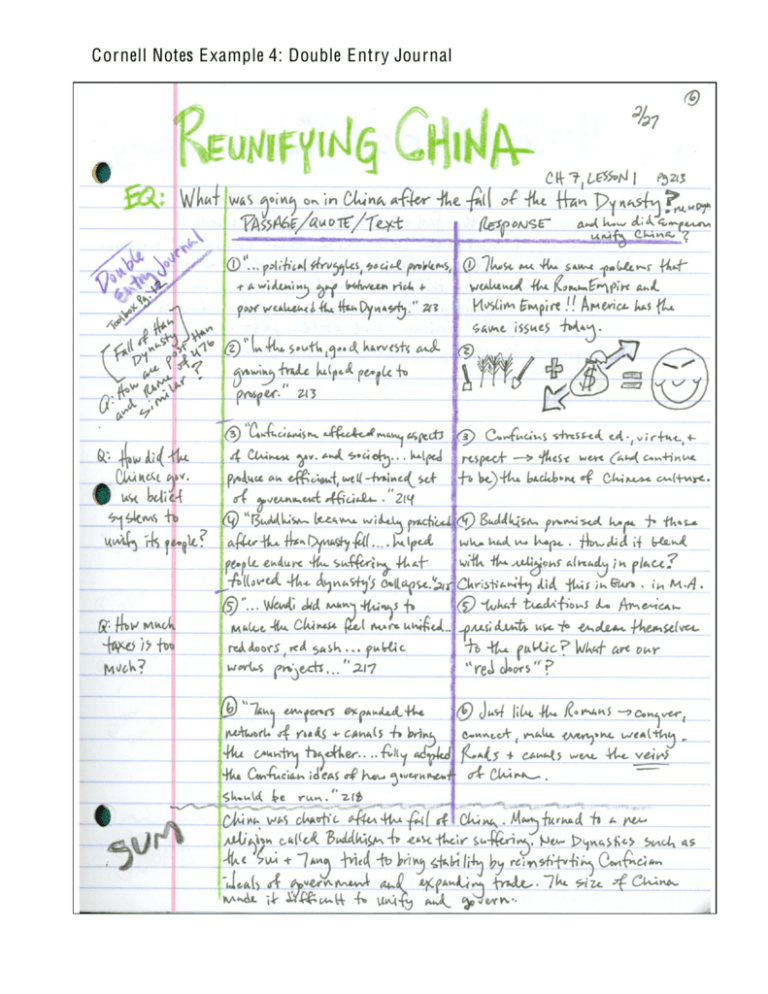 Cornell Notes Example 4: Double Entry Journal
6
2/27
REUNIFYING CHINA
CH 7, LESSON 1 pg 213
EQ: What was going on in China after the fall of the Han Dynasty?
and how did new Dyn emperors
unify China?
PASSAGE/QUOTE/Text
RESPONSE
Double
Entry Journal
Toolbox Pg. 12
[Fall of Han
Dynasty]
Q: How are post-Han
and Rome of 476
similar?
① "...political struggles, social problems,
+ a widening gap between rich +
poor weakened the Han Dynasty." 213
① These are the same problems that
weakened the Roman Empire and
Muslim Empire!! America has the
same issues today.
② "In the south, good harvests and
growing trade helped people to
prosper." 213
②
+ $ =
Q: How did the
Chinese gov.
use belief
systems to
unify its people?
③ "Confucianism affected many aspects
of Chinese gov. and society... helped
produce an efficient, well-trained set
of government officials." 214
③ Confucius stressed ed., virtue, +
respect → these were (and continue
to be) the backbone of Chinese culture.
④ "Buddhism became widely practiced
after the Han Dynasty fell.... helped
people endure the suffering that
followed the dynasty's collapse." 215
④ Buddhism promised hope to those
who had no hope. How did it blend
with the religions already in place?
Christianity did this in Euro. in M.A.
Q: How much
taxes is too
much?
⑤ "... Wendi did many things to
make the Chinese feel more unified...
red doors, red sash... public
works projects..." 217
⑤ What traditions do American
presidents use to endear themselves
to the public? What are our
"red doors"?
⑥ "Tang emperors expanded the
network of roads + canals to bring
the country together.... fully adopted
the Confucian ideas of how government
should be run." 218
⑥ Just like the Romans → conquer,
connect, make everyone wealthy.
Roads + canals were the veins
of China.
SUM
China was chaotic after the fall of China. Many turned to a new
religion called Buddhism to ease their suffering. New Dynasties such as
the Sui + Tang tried to bring stability by reinstituting Confucian
ideals of government and expanding trade. The size of China
made it difficult to unify and govern.